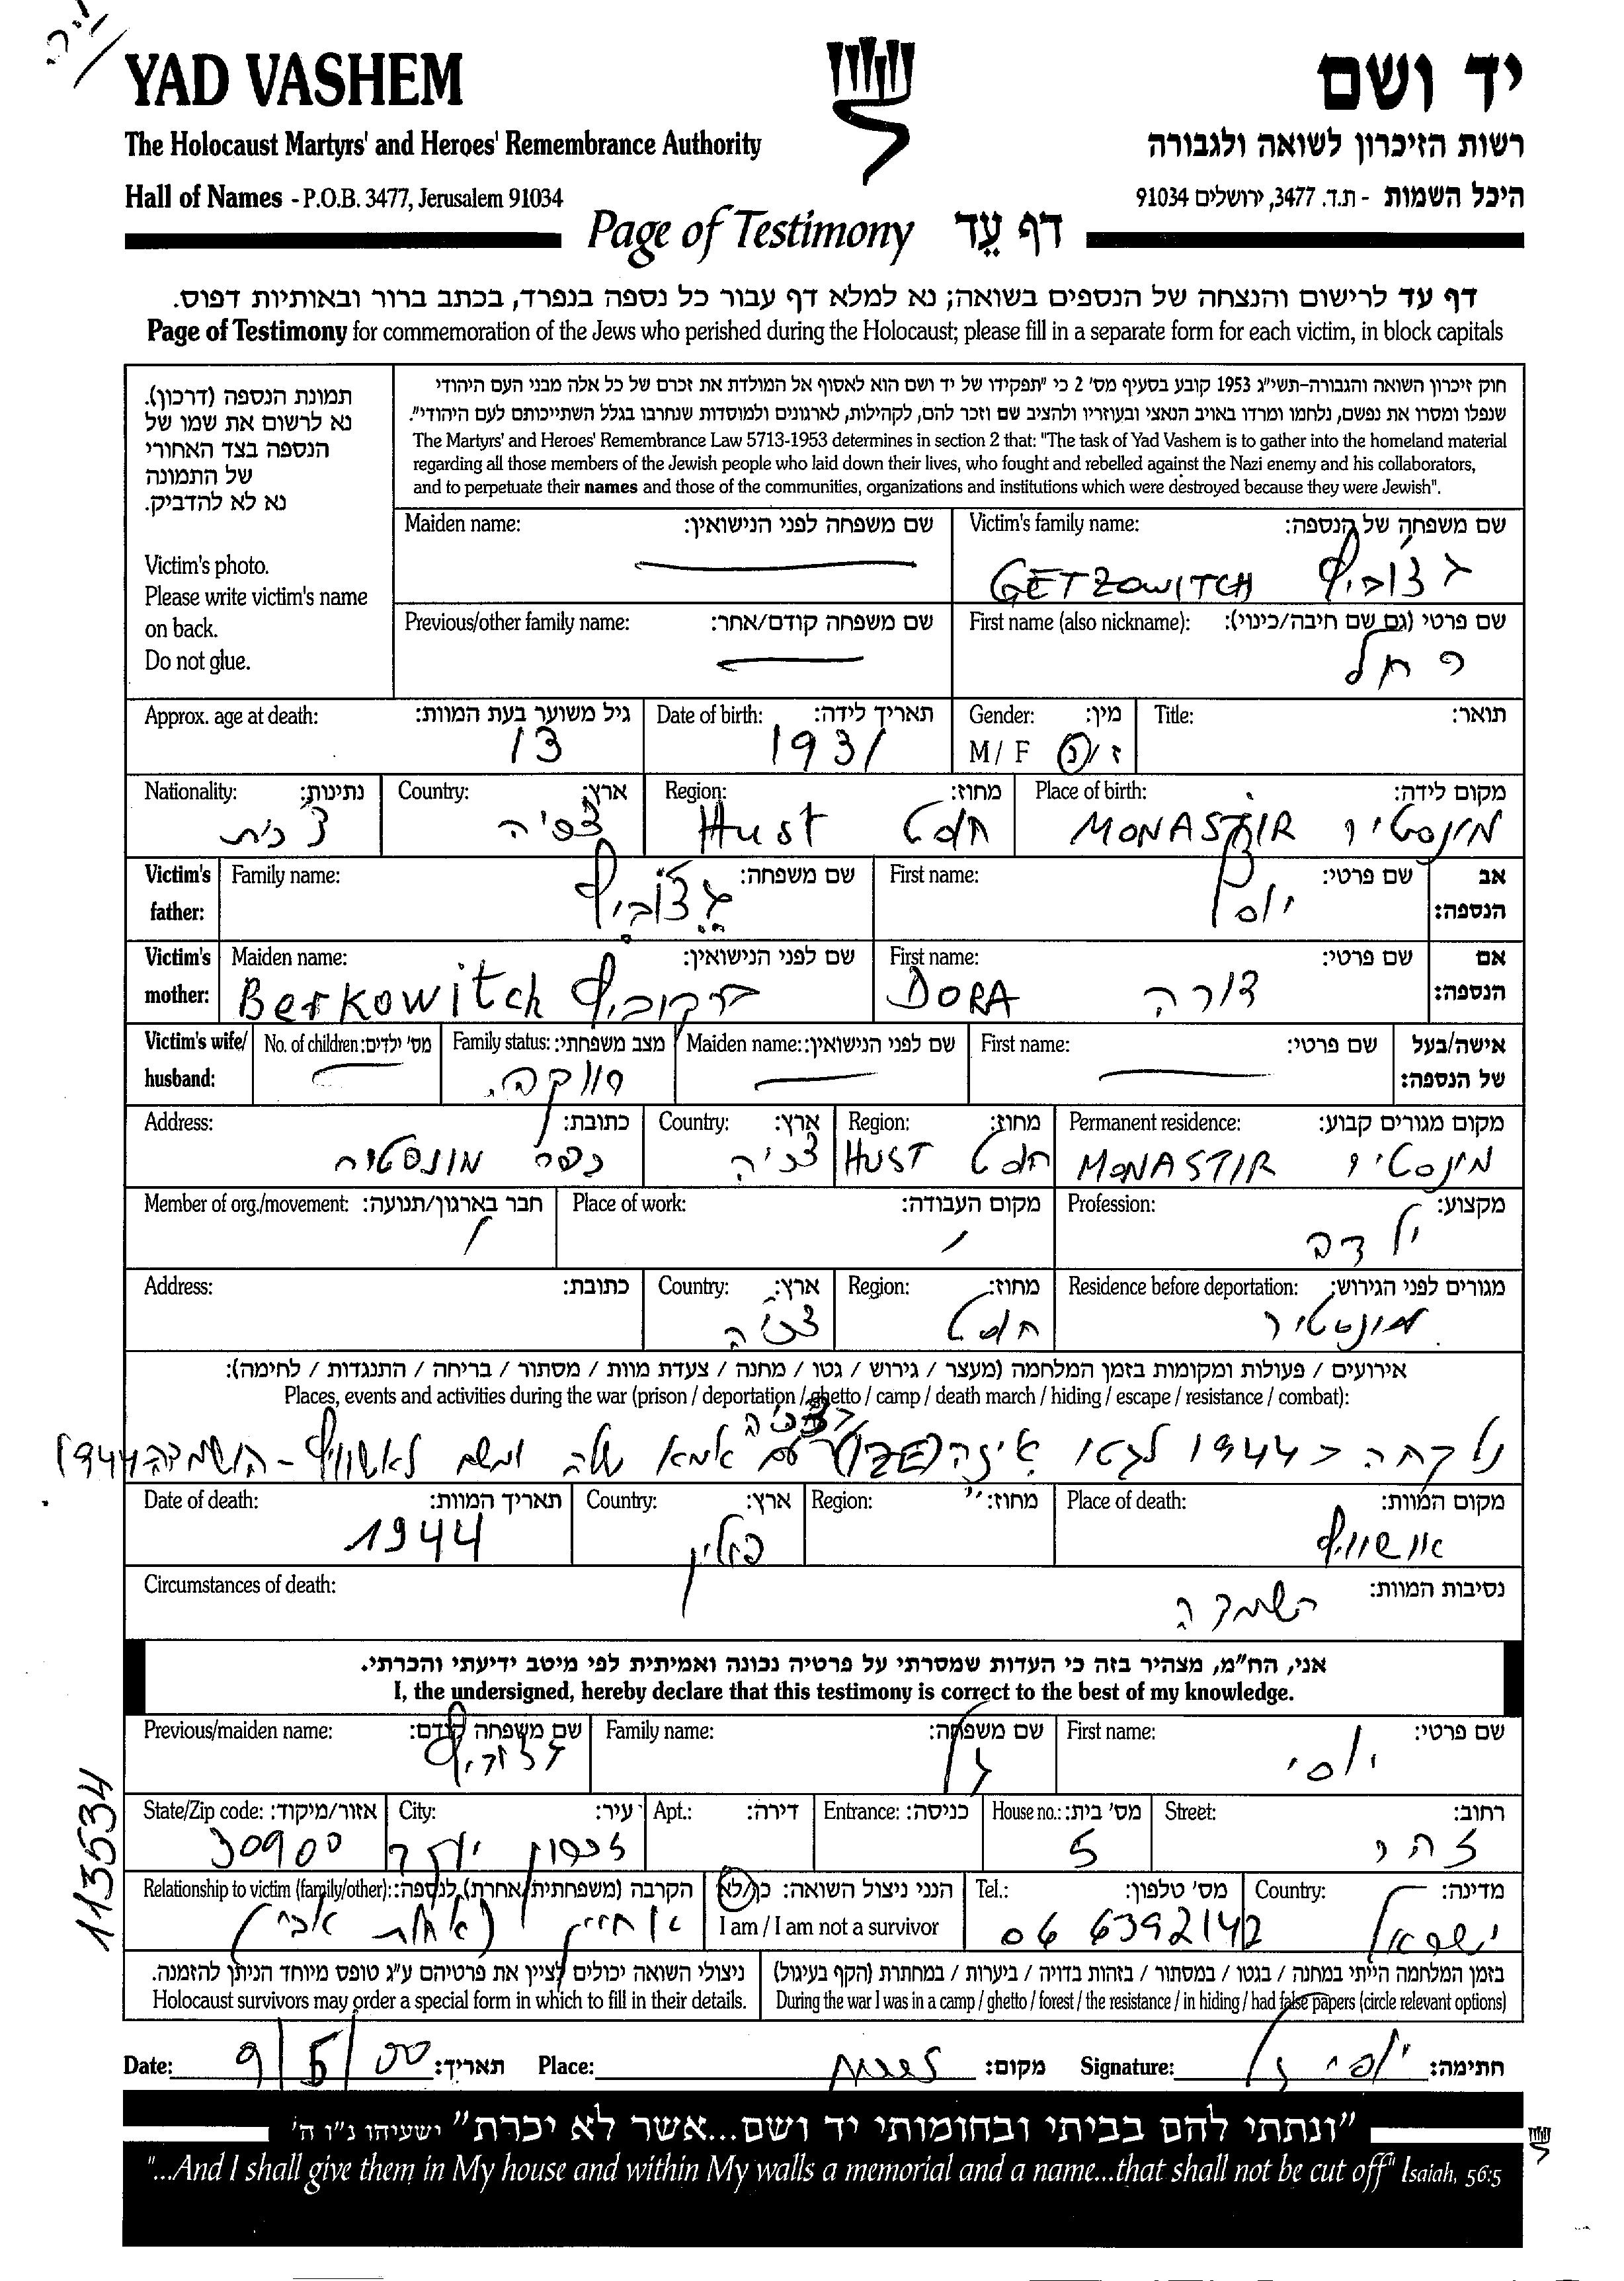 YAD VASHEM
יד ושם
The Holocaust Martyrs' and Heroes' Remembrance Authority
רשות הזיכרון לשואה ולגבורה
Hall of Names - P.O.B. 3477, Jerusalem 91034
היכל השמות - ת.ד. 3477, ירושלים 91034
Page of Testimony דף עֵד
דף עד לרישום והנצחה של הנספים בשואה; נא למלא דף עבור כל נספה בנפרד, בכתב ברור ובאותיות דפוס.
Page of Testimony for commemoration of the Jews who perished during the Holocaust; please fill in a separate form for each victim, in block capitals
תמונת הנספה (דרכון).
נא לרשום את שמו של
הנספה בצד האחורי
של התמונה
נא לא להדביק.
Victim's photo.
Please write victim's name
on back.
Do not glue.
חוק זיכרון השואה והגבורה-תשי"ג 1953 קובע בסעיף מס' 2 כי "תפקידו של יד ושם הוא לאסוף אל המולדת את זכרם של כל אלה מבני העם היהודי
שנפלו ומסרו את נפשם, נלחמו ומרדו באויב הנאצי ובעוזריו ולהציב שם וזכר להם, לקהילות, לארגונים ולמוסדות שנחרבו בגלל השתייכותם לעם היהודי".
The Martyrs' and Heroes' Remembrance Law 5713-1953 determines in section 2 that: "The task of Yad Vashem is to gather into the homeland material
regarding all those members of the Jewish people who laid down their lives, who fought and rebelled against the Nazi enemy and his collaborators,
and to perpetuate their names and those of the communities, organizations and institutions which were destroyed because they were Jewish".
Maiden name: שם משפחה לפני הנישואין:
Victim's family name: שם משפחה של הנספה:
GETZOWITCH גצוביץ
Previous/other family name: שם משפחה קודם/אחר:
First name (also nickname): שם פרטי (גם שם חיבה/כינוי):
רחל
Approx. age at death: גיל משוער בעת המוות:
13
Date of birth: תאריך לידה:
1931
Gender: מין:
M / F ז/נ
Title: תואר:
Nationality: נתינות:
צ'כית
Country: ארץ:
צכיה
Region: מחוז:
Hust חוסט
Place of birth: מקום לידה:
MONASTIR מונסטיר
Victim's father:
Family name: שם משפחה:
גצוביץ
First name: שם פרטי:
יוסף
אב הנספה:
Victim's mother:
Maiden name: שם לפני הנישואין:
Berkowitch ברקוביץ
First name: שם פרטי:
DORA דורה
אם הנספה:
Victim's wife/ husband:
No. of children: מס' ילדים:
Family status: מצב משפחתי:
רווקה
Maiden name: שם לפני הנישואין:
First name: שם פרטי:
אישה/בעל של הנספה:
Address: כתובת:
כפר מונסטיר
Country: ארץ:
צכיה
Region: מחוז:
HUST חוסט
Permanent residence: מקום מגורים קבוע:
MONASTIR מונסטיר
Member of org./movement: חבר בארגון/תנועה:
Place of work: מקום העבודה:
Profession: מקצוע:
ילדה
Address: כתובת:
Country: ארץ:
צכיה
Region: מחוז:
חוסט
Residence before deportation: מגורים לפני הגירוש:
מונסטיר
אירועים / פעולות ומקומות בזמן המלחמה (מעצר / גירוש / גטו / מחנה / צעדת מוות / מסתור / בריחה / התנגדות / לחימה):
Places, events and activities during the war (prison / deportation / ghetto / camp / death march / hiding / escape / resistance / combat):
בצכיה
נלקחה ב 1944 לגטו איזה עם אמא שלה ומשם לאשוויץ - הושמדה 1944
Date of death: תאריך המוות:
1944
Country: ארץ:
פולין
Region: מחוז:
Place of death: מקום המוות:
אושוויץ
Circumstances of death: נסיבות המוות:
השמדה
אני, הח"מ, מצהיר בזה כי העדות שמסרתי על פרטיה נכונה ואמיתית לפי מיטב ידיעתי והכרתי.
I, the undersigned, hereby declare that this testimony is correct to the best of my knowledge.
Previous/maiden name: שם משפחה קודם:
Family name: שם משפחה:
גל
First name: שם פרטי:
יוסי
State/Zip code: אזור/מיקוד:
30900
City: עיר:
זכרון יעקב
Apt.: דירה:
Entrance: כניסה:
House no.: מס' בית:
5
Street: רחוב:
113534
Relationship to victim (family/other): הקרבה (משפחתית/אחרת) לנספה:
אחיין (אחות אבי)
הנני ניצול השואה: כן/לא
I am / I am not a survivor
Tel.: מס' טלפון:
06 6392142
Country: מדינה:
ישראל
ניצולי השואה יכולים לציין את פרטיהם ע"ג טופס מיוחד הניתן להזמנה.
Holocaust survivors may order a special form in which to fill in their details.
בזמן המלחמה הייתי במחנה / בגטו / במסתור / בזהות בדויה / ביערות / במחתרת (הקף בעיגול)
During the war I was in a camp / ghetto / forest / the resistance / in hiding / had false papers (circle relevant options)
Date: 9/5/00 תאריך:
Place: מקום:
Signature: יוסי גל חתימה:
"ונתתי להם בביתי ובחומותי יד ושם...אשר לא יכרת" ישעיהו נ"ו ה'
"...And I shall give them in My house and within My walls a memorial and a name...that shall not be cut off" Isaiah, 56:5